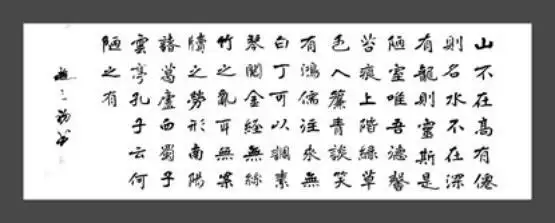 山不在高有僊
則名水不在深
有龍則靈斯是
陋室唯吾德馨
苔痕上階緑草
色入簾青談笑
有鴻儒往來無
白丁可以調素
琴閲金經無絲
竹之亂耳無案
牘之勞形南陽
諸葛廬西蜀子
雲亭孔子云何
陋之有